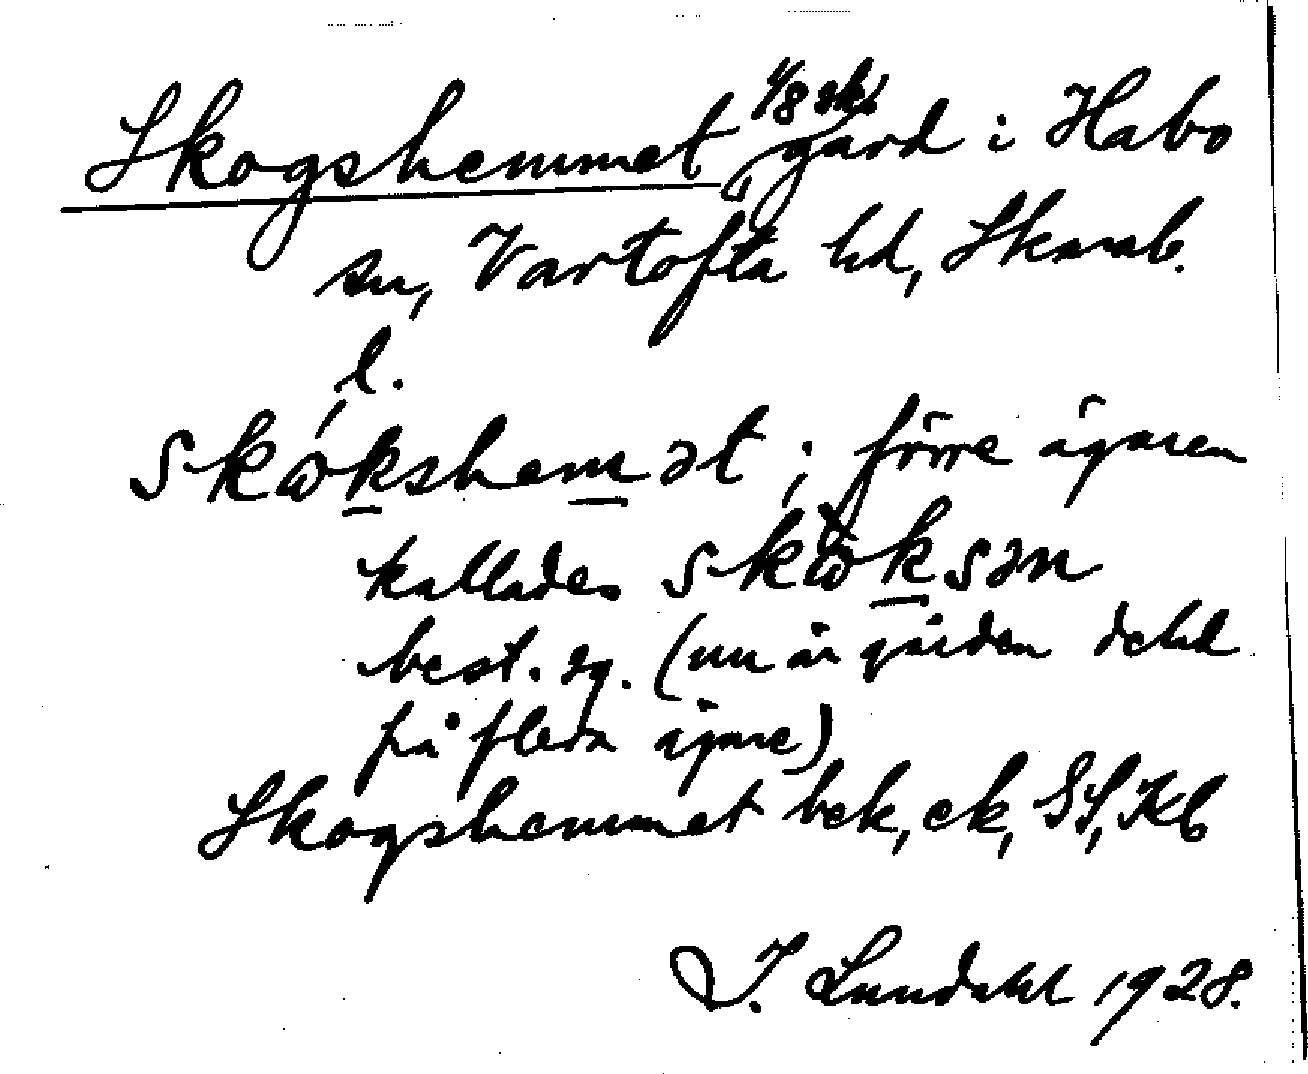 Skogshemmet 1/8 skt gård i Habo
sn, Vartofta hd, Skarab.
l.
skωkshemət ; förre ägaren
kallades skωksən
best. sg. (nu är gården delad
på flera ägare)
Skogshemmet bek, ek, SS, Kb
I. Lundahl 1928.